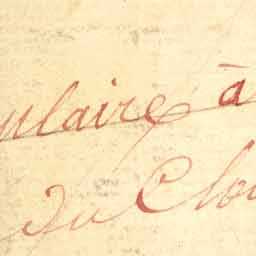 ulaire à
du Clo